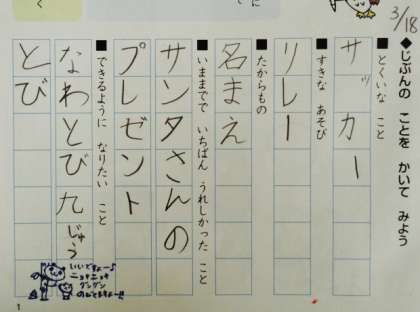 3/18
◆じぶんの ことを かいて みよう
■とくいな こと
サッカー
■すきな あそび
リレー
■たからもの
名まえ
■いままでで いちばん うれしかった こと
サンタさんの
プレゼント
■できるように なりたい こと
なわとび九じゅう
とび
いいですねー♪
ニョキニョキ
グングン
のびてますよー!!
1